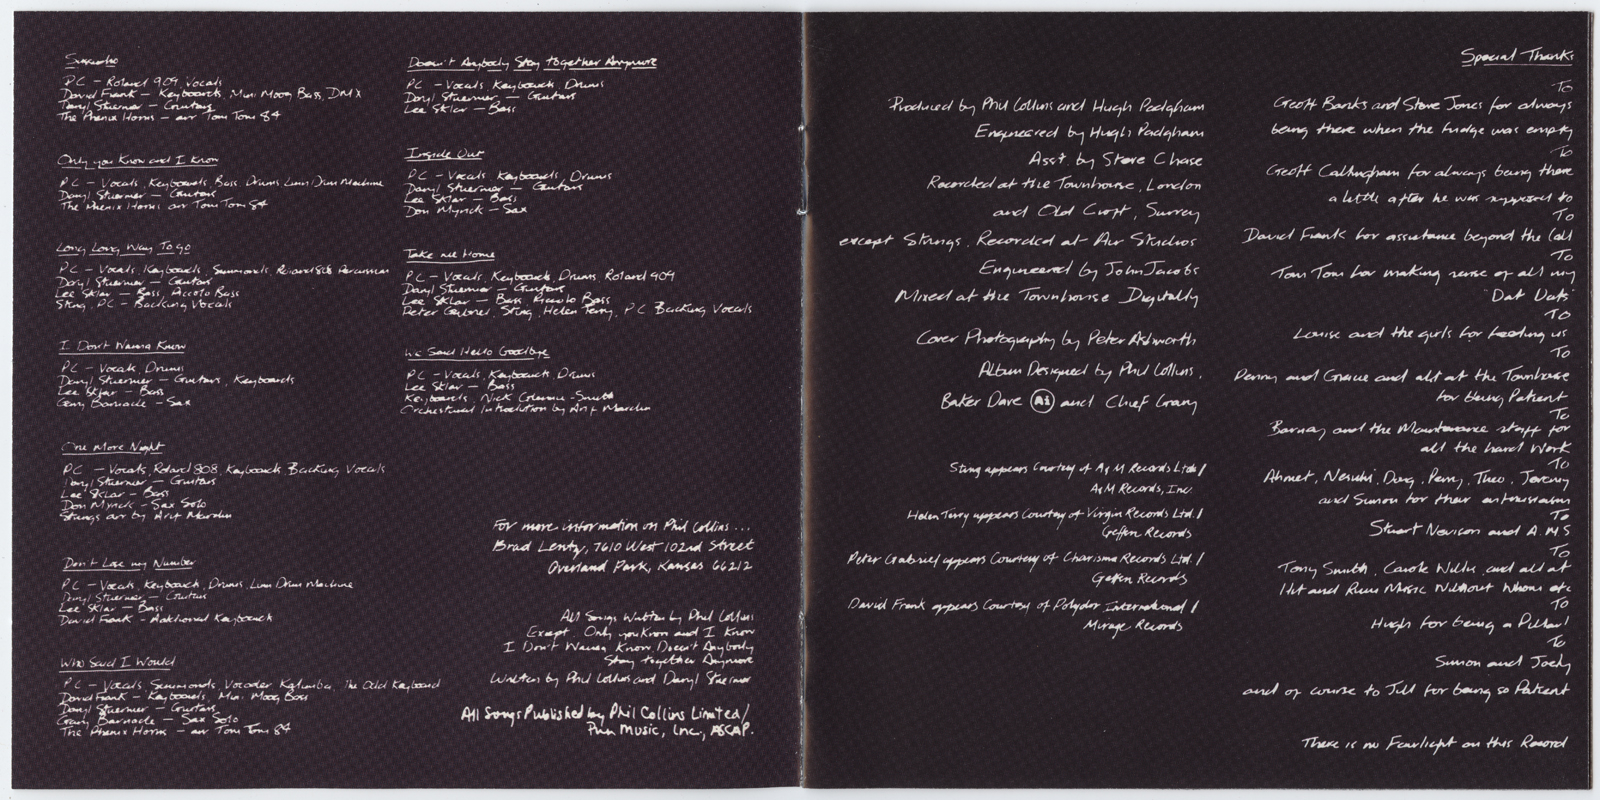 Sussudio
PC - Roland 909 Vocals
David Frank - Keyboards, Mini Moog Bass, DMX
Daryl Stuermer - Guitars
The Phenix Horns - arr Tom Tom 84
Only you Know and I Know
PC - Vocals, Keyboards, Bass, Drums, Linn Drum Machine
Daryl Stuermer - Guitars
The Phenix Horns arr Tom Tom 84
Long Long Way To go
PC - Vocals, Keyboards, Simmonds, Roland 808 Percussion
Daryl Stuermer - Guitars
Lee Sklar - Bass, Piccolo Bass
Sting, PC - Backing Vocals
I Don't Wanna Know
PC - Vocals Drums
Daryl Stuermer - Guitars, Keyboards
Lee Sklar - Bass
Gary Barnacle - Sax
One More Night
PC - Vocals, Roland 808, Keyboards Backing Vocals
Daryl Stuermer - Guitars
Lee Sklar - Bass
Don Myrick - Sax Solo
Strings arr by Arif Mardin
Don't Lose my Number
PC - Vocals, Keyboards, Drums, Linn Drum Machine
Daryl Stuermer - Guitars
Lee Sklar - Bass
David Frank - Additional Keyboards
Who Said I Would
PC - Vocals Simmonds, Vocoder Kalimba, The Odd Keyboard
David Frank - Keyboards, Mini Moog Bass
Daryl Stuermer - Guitars
Gary Barnacle - Sax Solo
The Phenix Horns - arr Tom Tom 84
Doesn't Anybody Stay together Anymore
PC - Vocals, Keyboards, Drums
Daryl Stuermer - Guitars
Lee Sklar - Bass
Inside Out
PC - Vocals Keyboards, Drums
Daryl Stuermer - Guitars
Lee Sklar - Bass
Don Myrick - Sax
Take me Home
PC - Vocals, Keyboards, Drums Roland 909
Daryl Stuermer - Guitars
Lee Sklar - Bass, Piccolo Bass
Peter Gabriel, Sting, Helen Terry, PC Backing Vocals
We Said Hello Goodbye
PC - Vocals, Keyboards, Drums
Lee Sklar - Bass
Keyboards, Nick Glennie-Smith
Orchestral Introduction by Arif Mardin
For more information on Phil Collins ...
Brad Lentz, 7610 West 102nd Street
Overland Park, Kansas 66212
All Songs Written by Phil Collins
Except. Only you Know and I Know
I Don't Wanna Know, Doesn't Anybody
Stay together Anymore
Written by Phil Collins and Daryl Stuermer
All Songs Published by Phil Collins Limited/
Pun Music, Inc., ASCAP.
Produced by Phil Collins and Hugh Padgham
Engineered by Hugh Padgham
Asst. by Steve Chase
Recorded at the Townhouse, London
and Old Croft, Surrey
except Strings, Recorded at Air Studios
Engineered by John Jacobs
Mixed at the Townhouse Digitally
Cover Photography by Peter Ashworth
Album Designed by Phil Collins,
Baker Dave Ai and Chief Grany
Sting appears Courtesy of A&M Records Ltd/
A&M Records, Inc.
Helen Terry appears Courtesy of Virgin Records Ltd./
Geffen Records
Peter Gabriel appears Courtesy of Charisma Records Ltd./
Geffen Records
David Frank appears Courtesy of Polydor International/
Mirage Records
Special Thanks
To
Geoff Banks and Steve Jones for always
being there when the fridge was empty
To
Geoff Callingham for always being there
a little after he was supposed to
To
David Frank for assistance beyond the Call
To
Tom Tom for making sense of all my
'Dat Dats'
To
Louise and the girls for feeding us
To
Penny and Gracie and all at the Townhouse
for being Patient
To
Barney and the Maintenance staff for
all the hard Work
To
Ahmet, Nesuhi, Doug, Perry, Theo, Jeremy
and Simon for their enthusiasm
To
Stuart Nevison and A.M.S
To
Tony Smith, Carole Willis, and all at
Hit and Run Music Without Whom etc
To
Hugh for being a Pillar!
To
Simon and Joely
and of course to Jill for being so Patient
There is no Fairlight on this Record